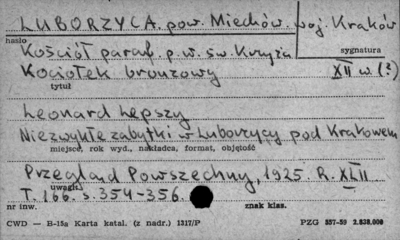 LUBORZYCA pow. Miechów. woj. Kraków
hasło
Kościół paraf. p.w. św. Krzyża
sygnatura
Kociołek bronzowy XII w. (?)
tytuł
Leonard Lepszy
Niezwykłe zabytki w Luborzycy pod Krakowem
miejsce, rok wyd., nakładca, format, objętość
Przegląd Powszechny, 1925. R. XLII
uwagi.
T. 166. s. 354-356.
nr inw. znak klas.
CWD — B-15a Karta katal. (z nadr.) 1317/P PZG 557-59 2.838.000